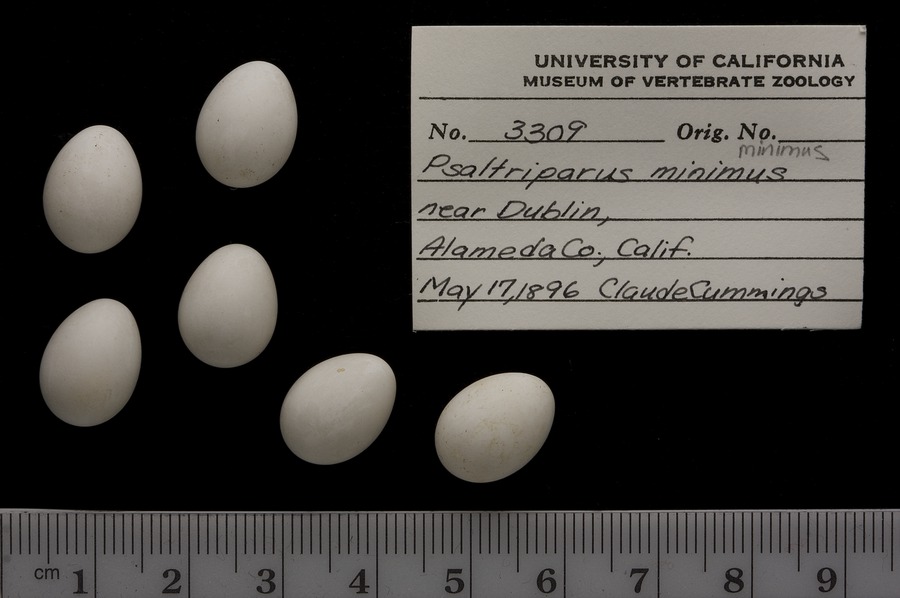 UNIVERSITY OF CALIFORNIA
MUSEUM OF VERTEBRATE ZOOLOGY
No. 3309 Orig. No.
minimus
Psaltriparus minimus
near Dublin,
Alameda Co., Calif.
May 17, 1896 Claude Cummings
cm 1 2 3 4 5 6 7 8 9